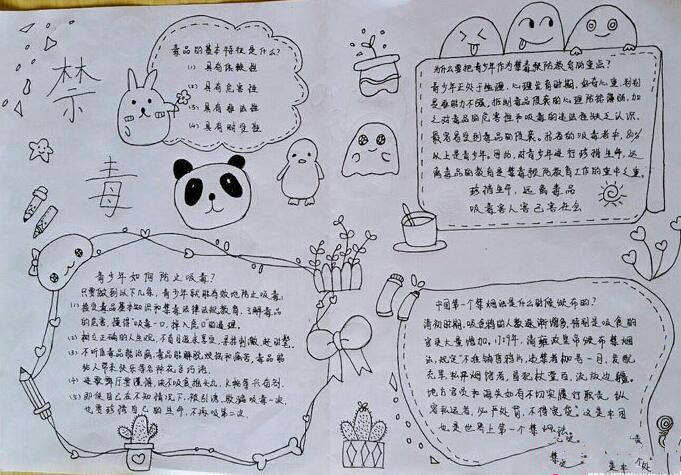 禁
毒
毒品的基本特征是什么?
(1) 具有依赖性
(2) 具有危害性
(3) 具有非法性
(4) 具有耐受性
为什么要把青少年作为禁毒预防教育的重点?
青少年正处于生理、心理发育时期,好奇心重,判别
是非能力不强,抵制毒品侵袭的心理防线薄弱,加
之对毒品的危害性和吸毒的违法性缺乏认识,
最容易受到毒品的侵袭。
以上是青少年。因此,对青少年进行珍惜生命,远
离毒品的教育是禁毒预防教育工作的重中之重。
珍惜生命,远离毒品
吸毒害人害己害社会
青少年如何防止吸毒?
只要做到以下几条,青少年就能有效地防止吸毒:
(1) 接受毒品基本知识和禁毒法律法规教育,了解毒品
的危害,懂得“吸毒一口,掉入虎口”的道理。
(2) 树立正确的人生观,不盲目追求享受,寻求刺激,赶时髦。
(3) 不听信毒品能治病,毒品能解脱烦恼和痛苦,毒品能
给人带来快乐等各种花言巧语。
(4)
(5) 即使自己在不知情况下,被引诱、欺骗吸毒一次,
也要珍惜自己的生命,不再吸第二次。
中国第一个禁烟法是什么时候颁布的?
清初时期,吸食鸦片人数逐渐增多,特别是吸食的
官员大量增加。1729年,清雍正皇帝颁布禁烟
法,规定不准销售鸦片,违禁者枷号一月,发配
充军,私开烟馆者,首犯杖责百,流放边疆。
地方官员和海关如有不切实履行职责,纵
容私运者,必予处罚,不得宽贷。这是中国
也是世界上第一个禁烟法